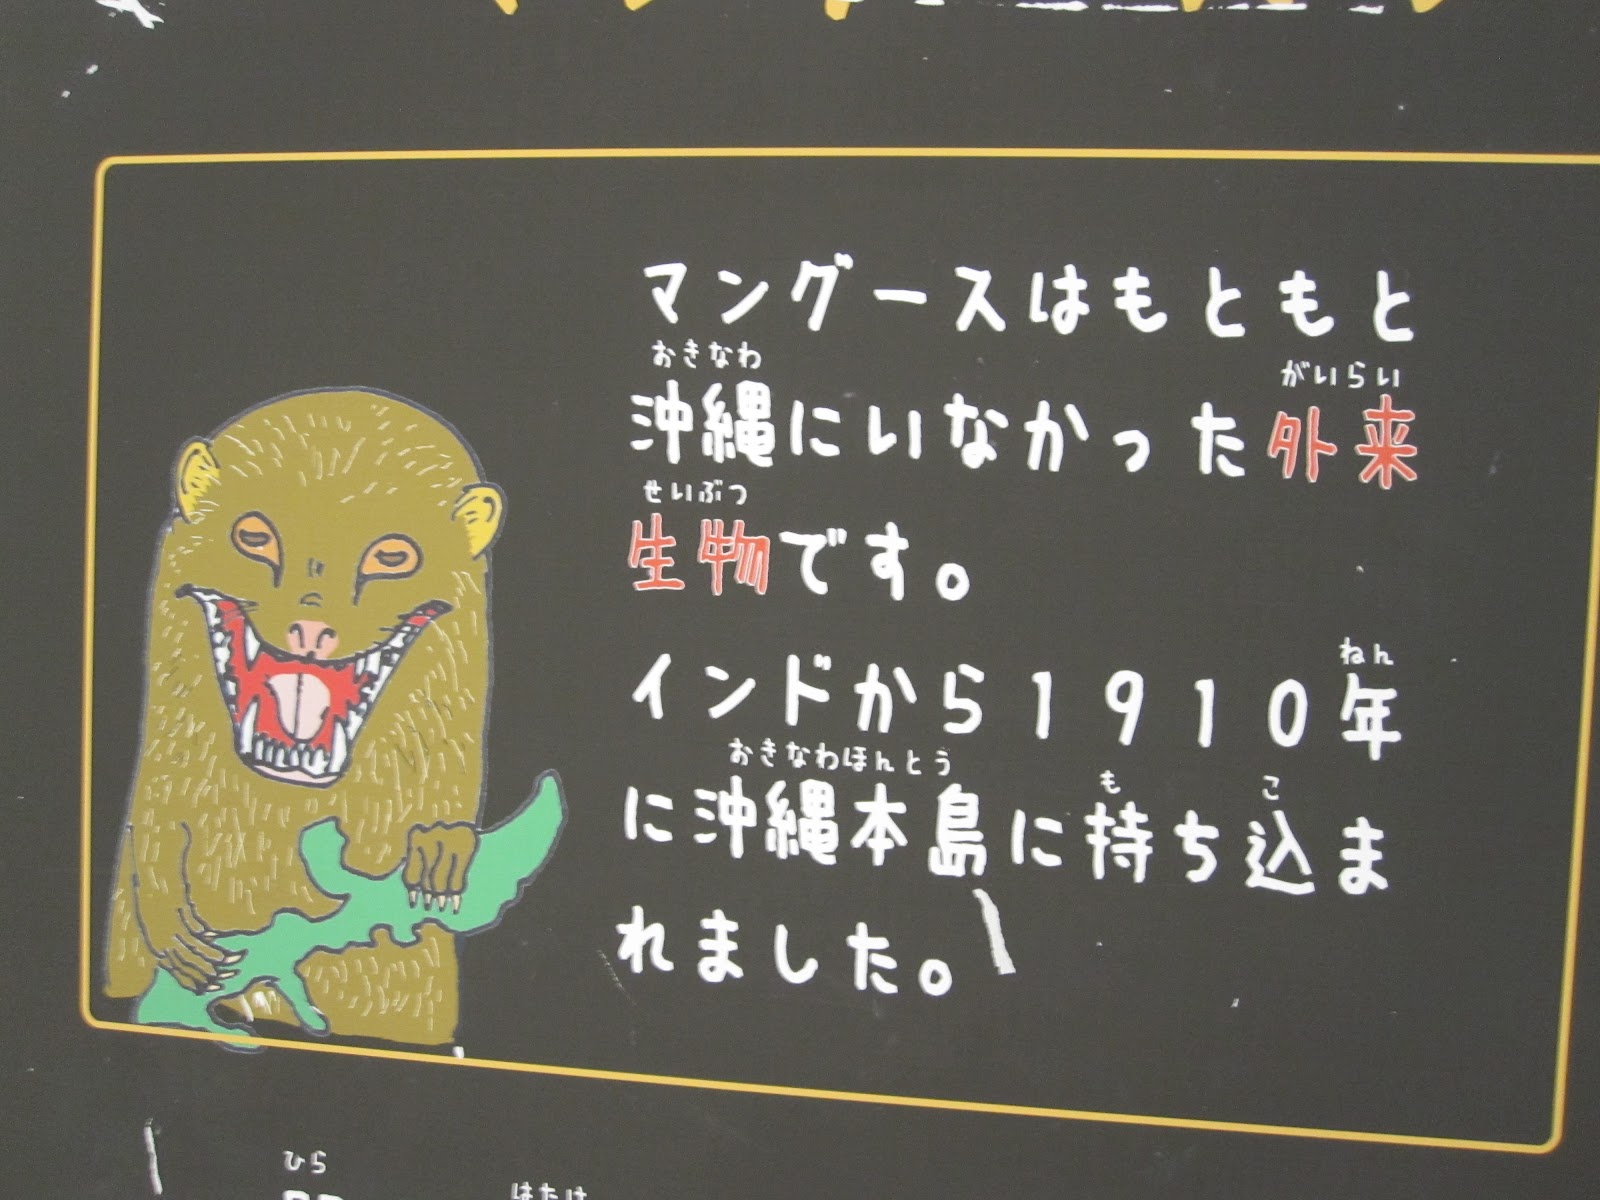 マングースはもともと
おきなわ がいらい
沖縄にいなかった外来
せいぶつ
生物です。
ねん
インドから1910年
おきなわほんとう も こ
に沖縄本島に持ち込ま
れました。
ひら
はたけ